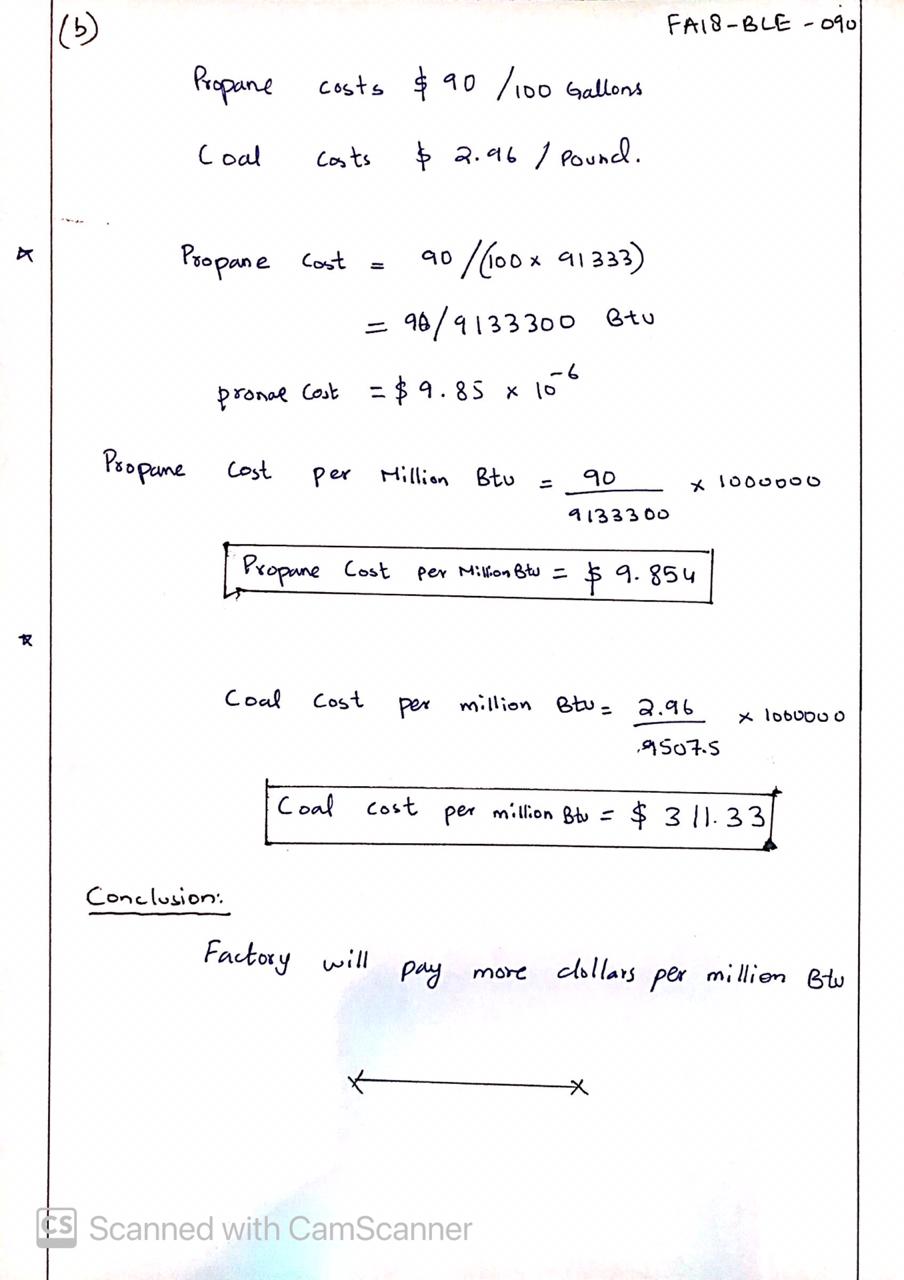 (b)
FA18-BLE-090
Propane costs $ 90 /100 Gallons
Coal costs $ 2.96 / Pound.
Propane Cost = 90 /(100 x 91333)
= 90/9133300 Btu
pronae Cost = $ 9.85 x 10^-6
Propane Cost per Million Btu = 90/9133300 x 1000000
Propane Cost per Million Btu = $ 9.854
Coal Cost per million Btu = 2.96/9507.5 x 1000000
Coal cost per million Btu = $ 311.33
Conclusion:
Factory will pay more dollars per million Btu
CS Scanned with CamScanner